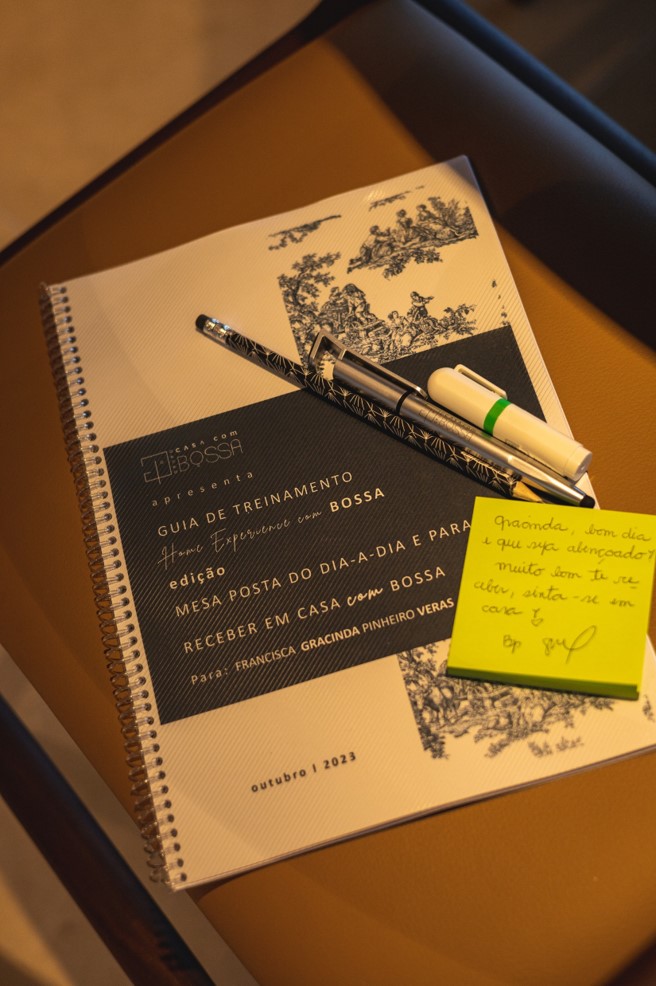 CASA com
BOSSA
apresenta
GUIA DE TREINAMENTO
Home Experience com BOSSA
edição
MESA POSTA DO DIA-A-DIA E PARA
RECEBER EM CASA com BOSSA
Para: FRANCISCA GRACINDA PINHEIRO VERAS
outubro I 2023
gracinda, bom dia
e que seja abençoado!
muito bom te re
ceber, sinta-se em
casa
Bjo